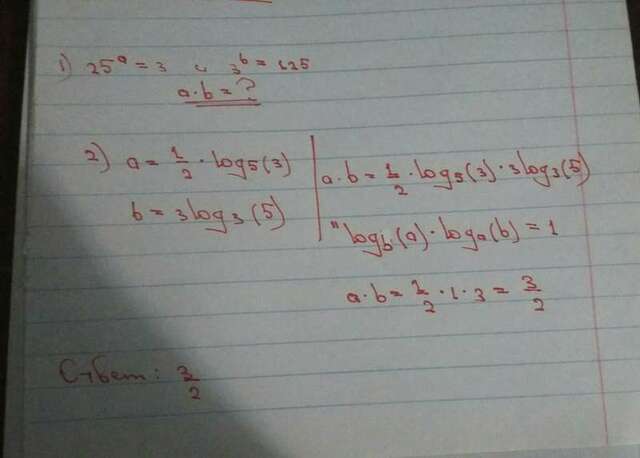 1) 25ᵃ = 3 и 3ᵇ = 125
a·b = ?
2) a = 1/2 · log₅(3)
b = 3log₃(5)
a·b = 1/2 · log₅(3) · 3log₃(5)
"log_b(a) · logₐ(b) = 1
a·b = 1/2 · 1 · 3 = 3/2
Ответ: 3/2